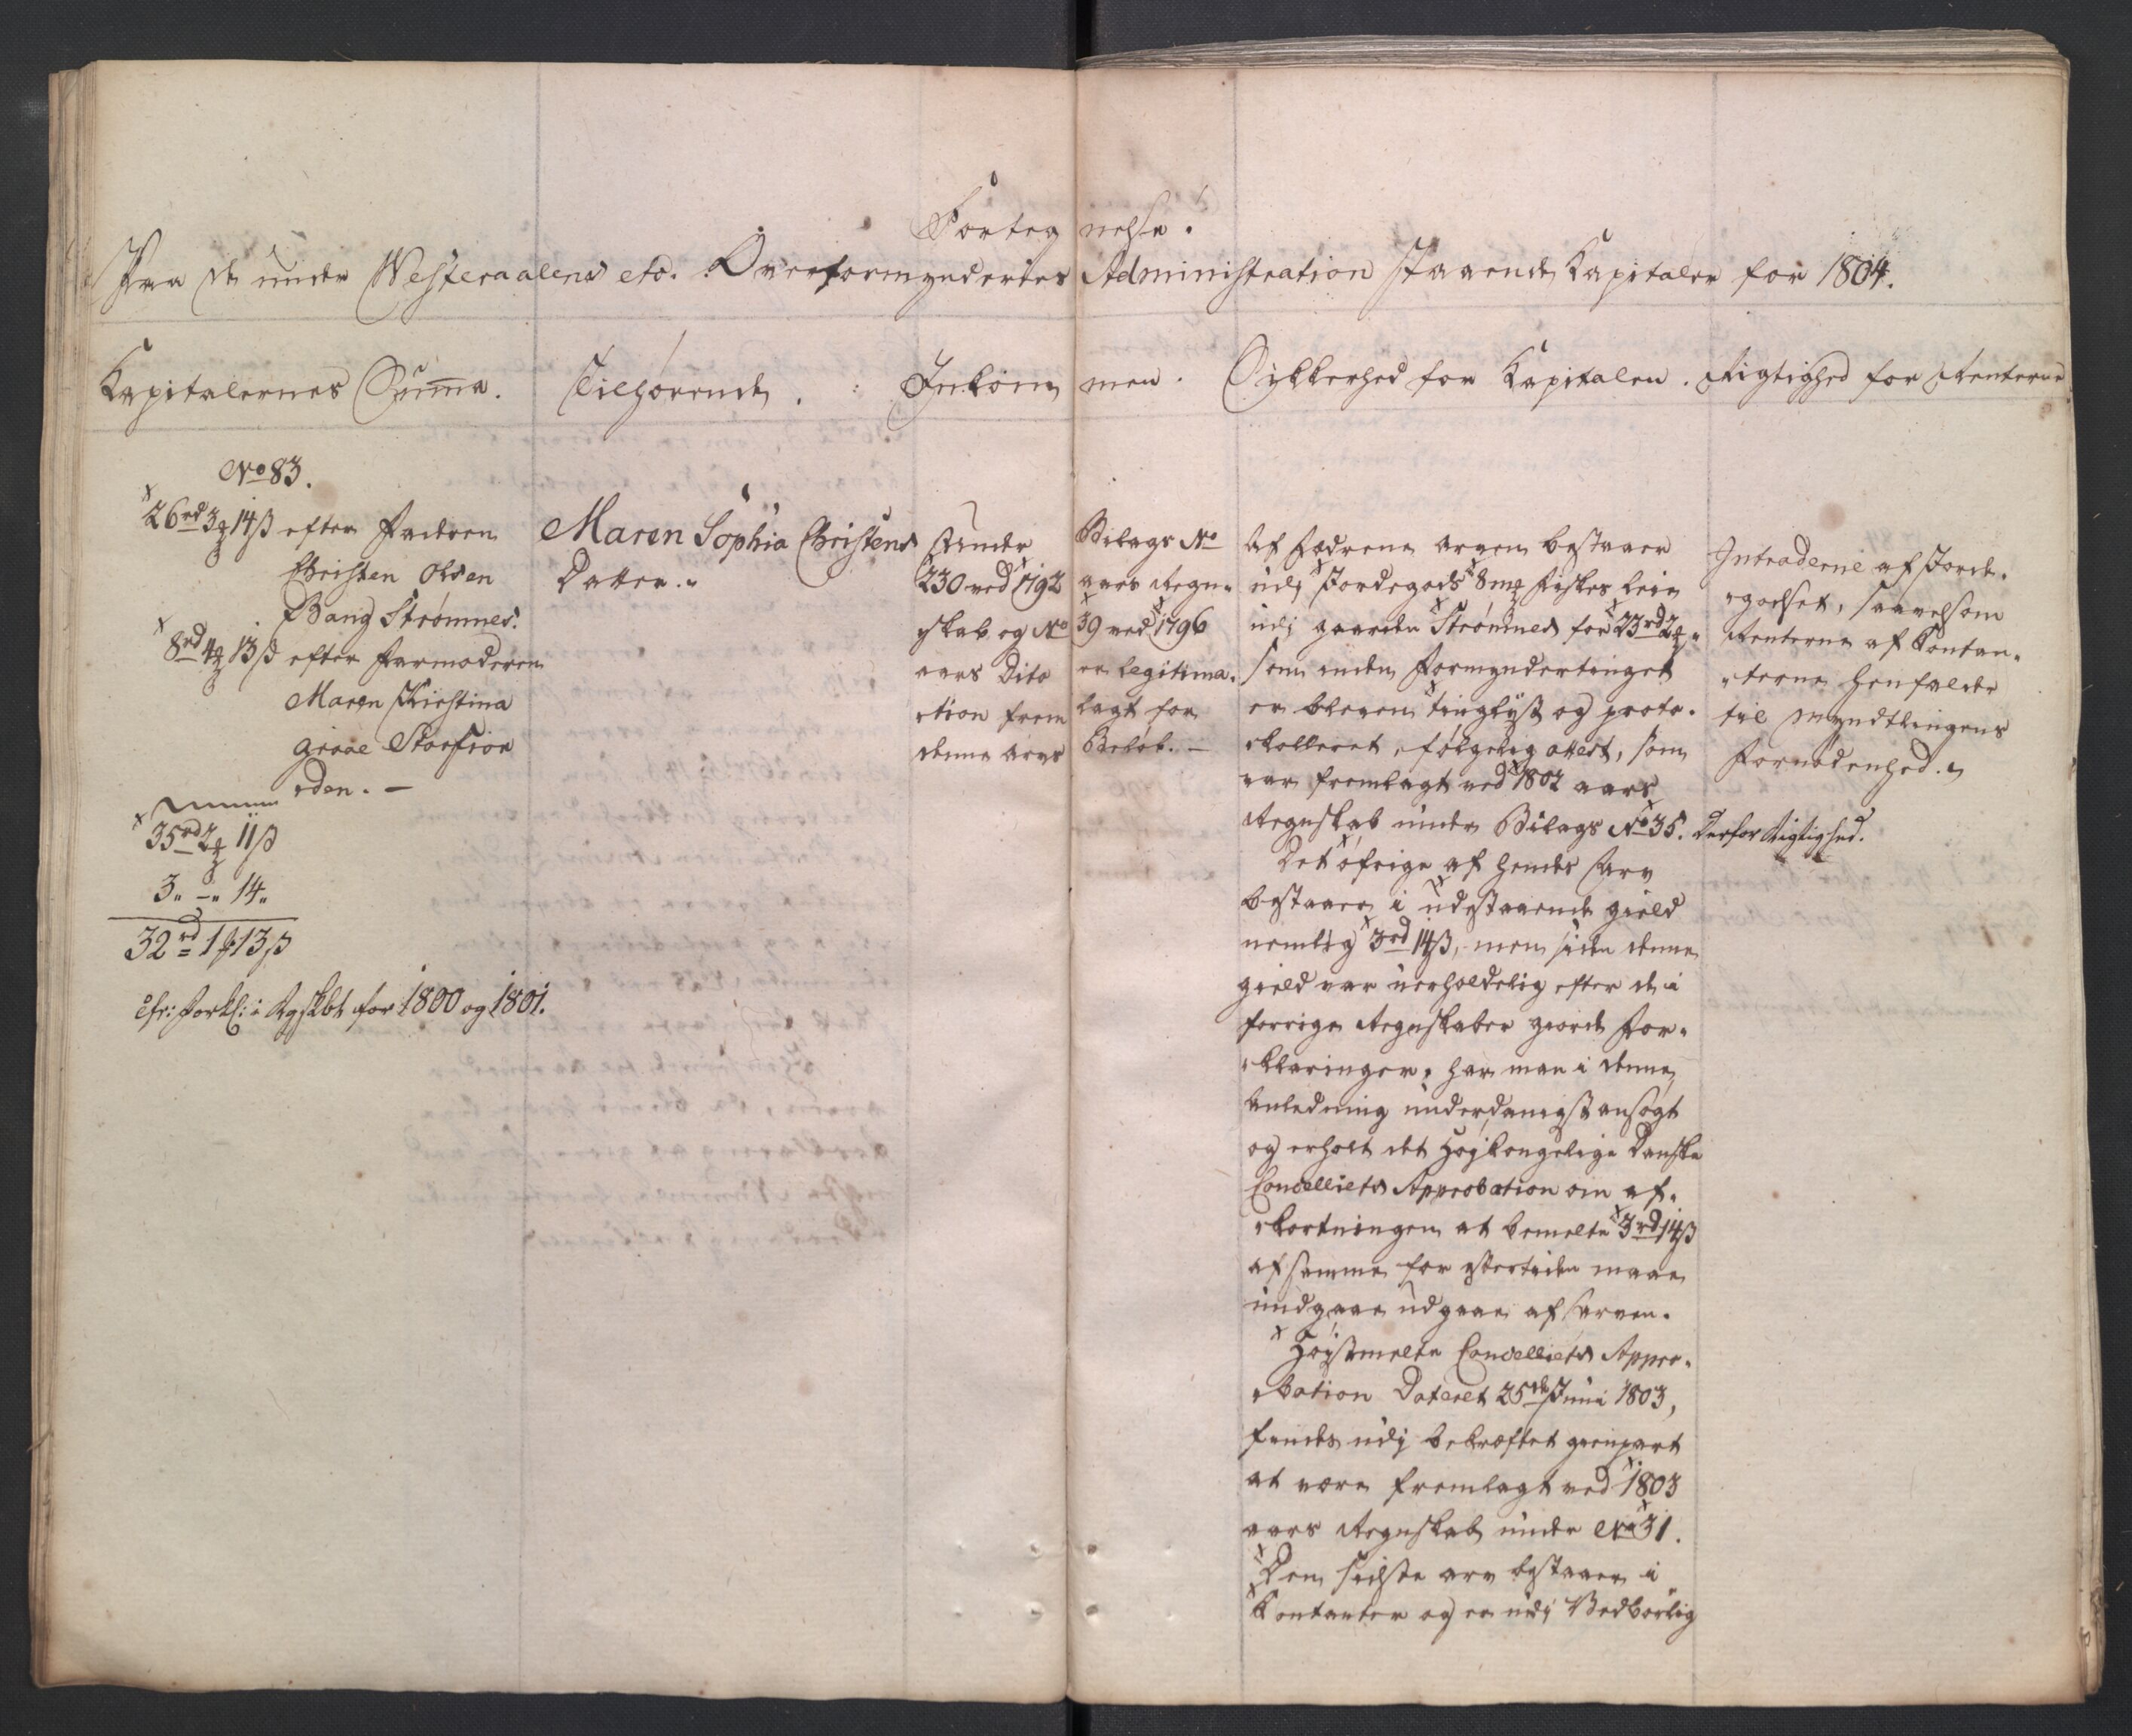 Forteg nelse.
Paa de under Westeraalens etc. Overformynderies Administration staaende Kapitaler for 1804.
Kapitalernes Summa. Tilhørende. Inkom men. Sikkerhed for Kapitalen. Rigtighed for Renterne
No 83.
26rd 3 14ß efter Faderen
Christen Olsen
Bang Strømnes.
8rd 4 13ß efter Farmoderen
Maren Kirstina
graae Storfior
den. -
35rd 2 11ß
3 " - " 14 "
32rd 1 13ß
cfr: Forkl: i Rgskbt for 1800 og 1801.
Maren Sophia Christens
Datter.
Under Bilags No
230 ved 1792 aars Regn-
skab og No 39 ved 1796
aars Dito er legitima-
tion frem lagt for
denne arvs Beløb. -
Af Fædrene arven bestaaer
udj Jordegods 8 Fiskes leie
udj gaarden Strømnes for 23rd 2
som inden Formyndertinget
er bleven tinglyst og proto-
kolleret, følgelig attest, som
var fremlagt ved 1802 aars
Regnskab under Bilags No 35.
Det øfrige af hendes Arv
bestaaer i udestaaende gield
nemlig 3rd 14ß, men siden denne
gield var uerholdelig efter de i
forrige Regnskaber giorde For-
klaringer, har man i denne
Anledning underdanigst ansøgt
og erholt det Højkongelige Danske
Cancelliets Approbation om af-
kortningen at bemelte 3rd 14ß
af samme for eftertiden maae
undgaae udgaae af arven.
Høystmelte Cancelliets Appro-
bation Dateret 25de Juni 1803,
findes udj bekræftet gienpart
at være fremlagt ved 1803
aars Regnskab under No 31.
Den sidste arv bestaaer i
Kontanter og er udj Vedbørlig
Intraderne af Jorde-
godset, saavelsom
Renterne af Kontan-
terne henfalder
til Myndtlingens
Fornødenhed.
Derfor Rigtighed.